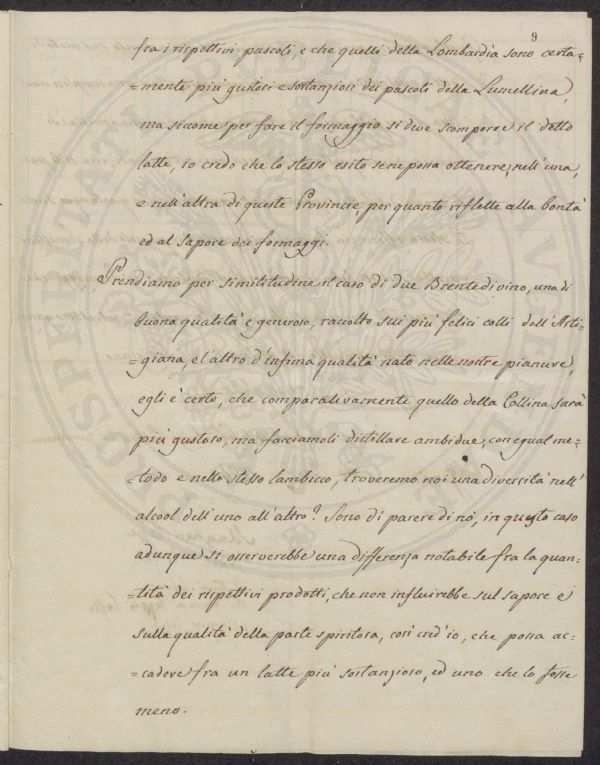 9
fra i rispettivi pascoli, e che quelli della Lombardia sono certa=
=mente più gustosi e sostanziosi dei pascoli della Lumellina,
ma siccome per fare il formaggio si deve scomporre il detto
latte, io credo che lo stesso esito se ne possa ottenere, nell'una,
e nell'altra di queste Provincie, per quanto riflette alla bontà
ed al sapore dei formaggi.
Prendiamo per similitudine il caso di due Brente di vino, una di
buona qualità e generoso, raccolto sui più felici colli dell'Asti=
=giana, e l'altro d'infima qualità nato nelle nostre pianure,
egli è certo, che comparativamente quello della Collina sarà
più gustoso, ma facciamoli distillare ambidue, con egual me=
=todo e nello stesso lambicco, troveremo noi una diversità nell'
alcool dell'uno all'altro? Sono di parere di nò, in questo caso
adunque si osserverebbe una differenza notabile fra la quan=
=tità dei rispettivi prodotti, che non influirebbe sul sapore e
sulla qualità della parte spiritosa, così cred'io, che possa ac=
=cadere fra un latte più sostanzioso, ed uno che lo fosse
meno.
PROSPERITATI